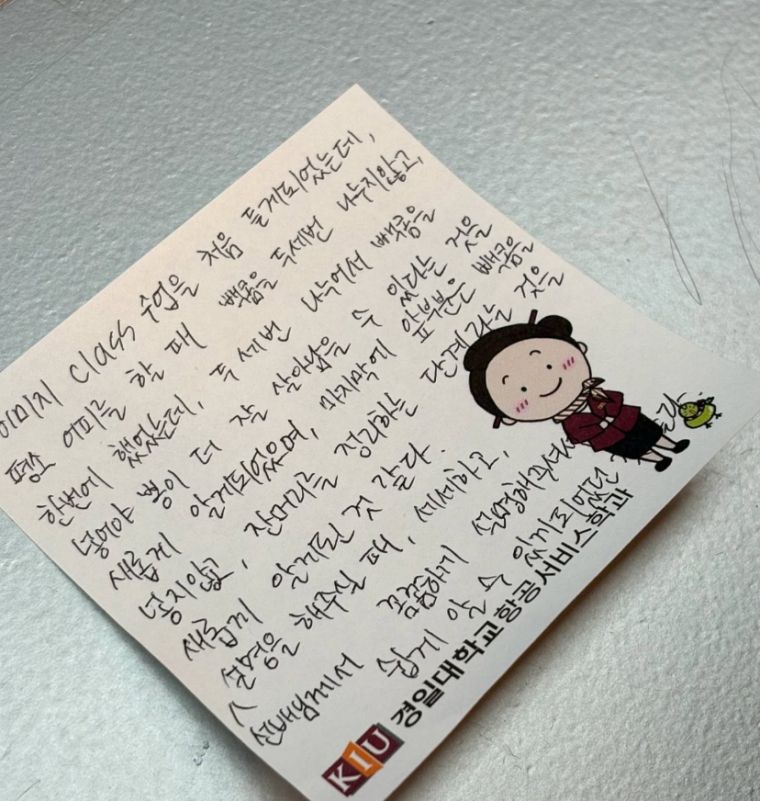 이미지 class 수업을 처음 듣게되었는데,
평소 어피를 할 때 빽콤을 두세번 나누지않고,
한번에 했었는데, 두 세번 나누어서 빽콤을
넣어야 뽕이 더 잘 살아남을 수 있다는 것을
새롭게 알게되었으며, 마지막에 앞부분은 빽콤을
넣지않고, 잔머리를 정리하는 단계라는 것을
새롭게 알게된 것 같다.
설명을 해주실 때, 세세하고,
선배님께서 꼼꼼하게 설명해주셔서
쉽게 알 수 있게되었던
KIU 경일대학교 항공서비스학과